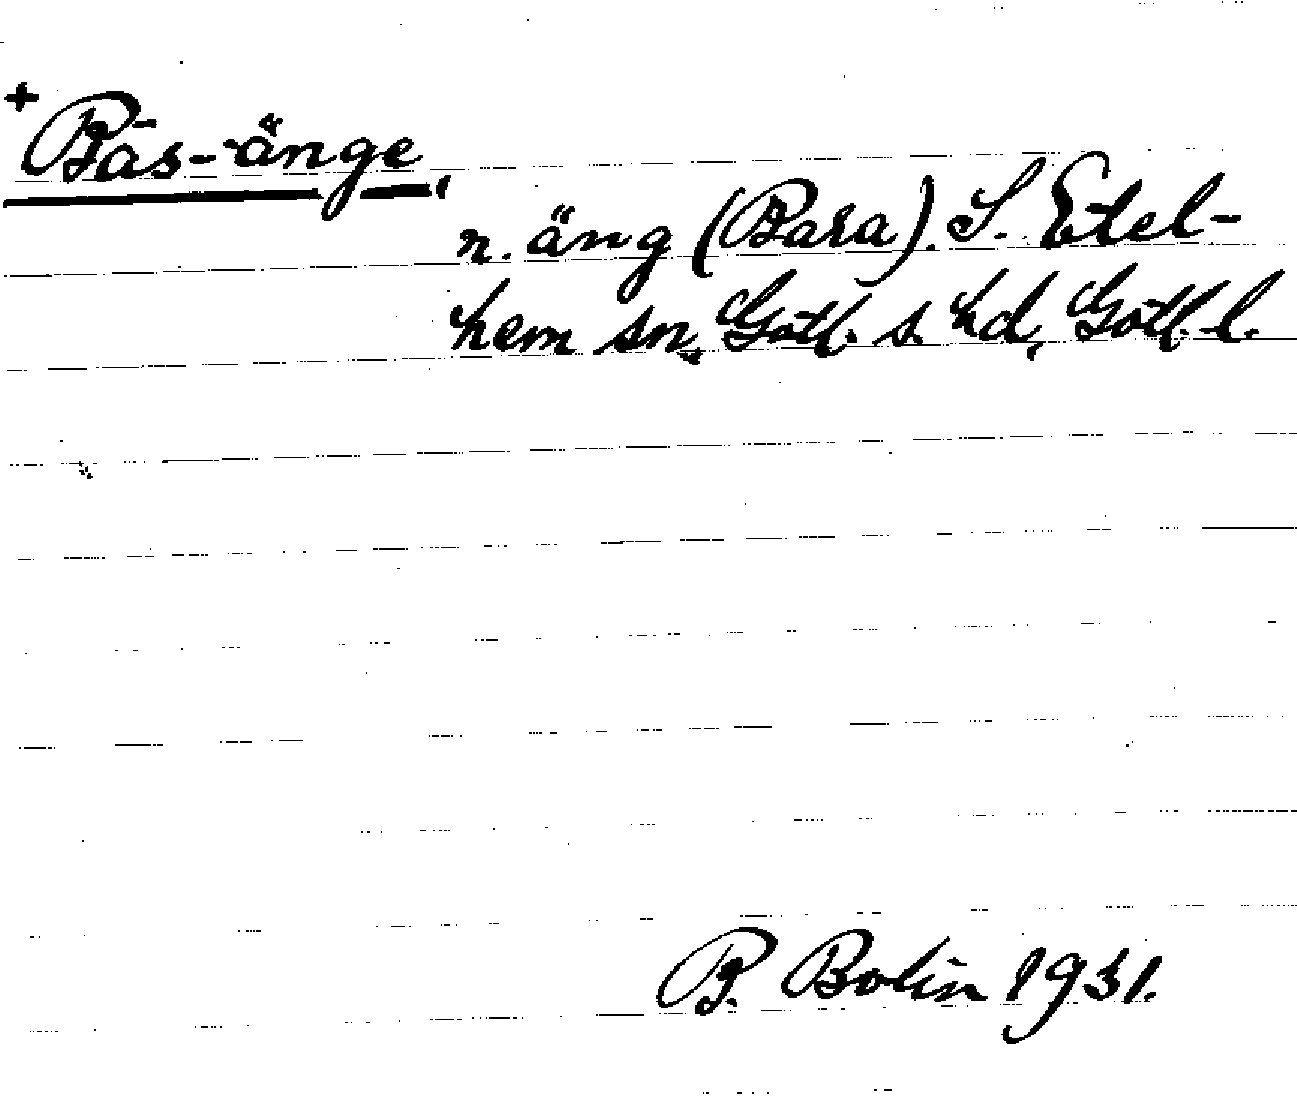 +
Bās-änge,
n. äng (Bara). S. Etel-
hem sn, Gotl. s. hd, Gotl. l.
B. Bolin 1931.